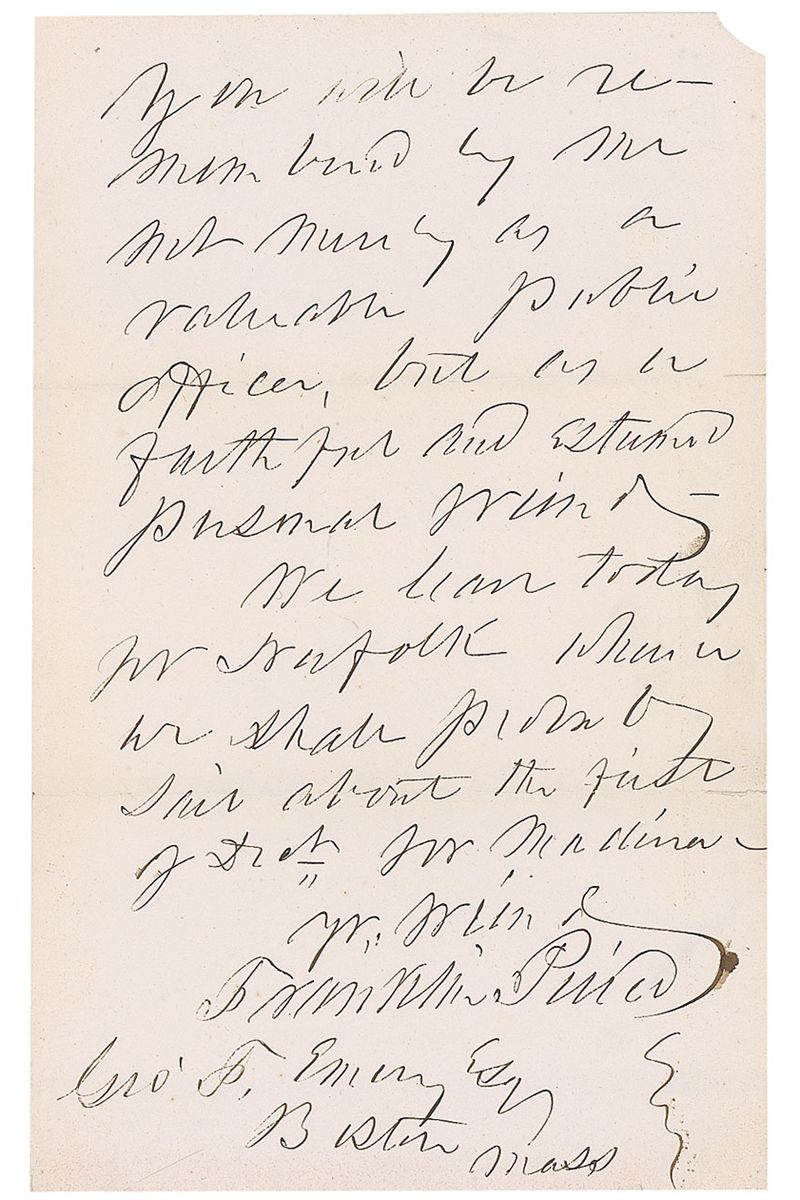 You will be re-
membered by me
not merely as a
valuable public
officer, but as a
faithful and esteemed
personal friend -
We leave today
for Norfolk whence
we shall probably
sail about the first
of Decr for Madeira -
yr. friend
Franklin Pierce
Geo F. Emery Esq
Boston Mass